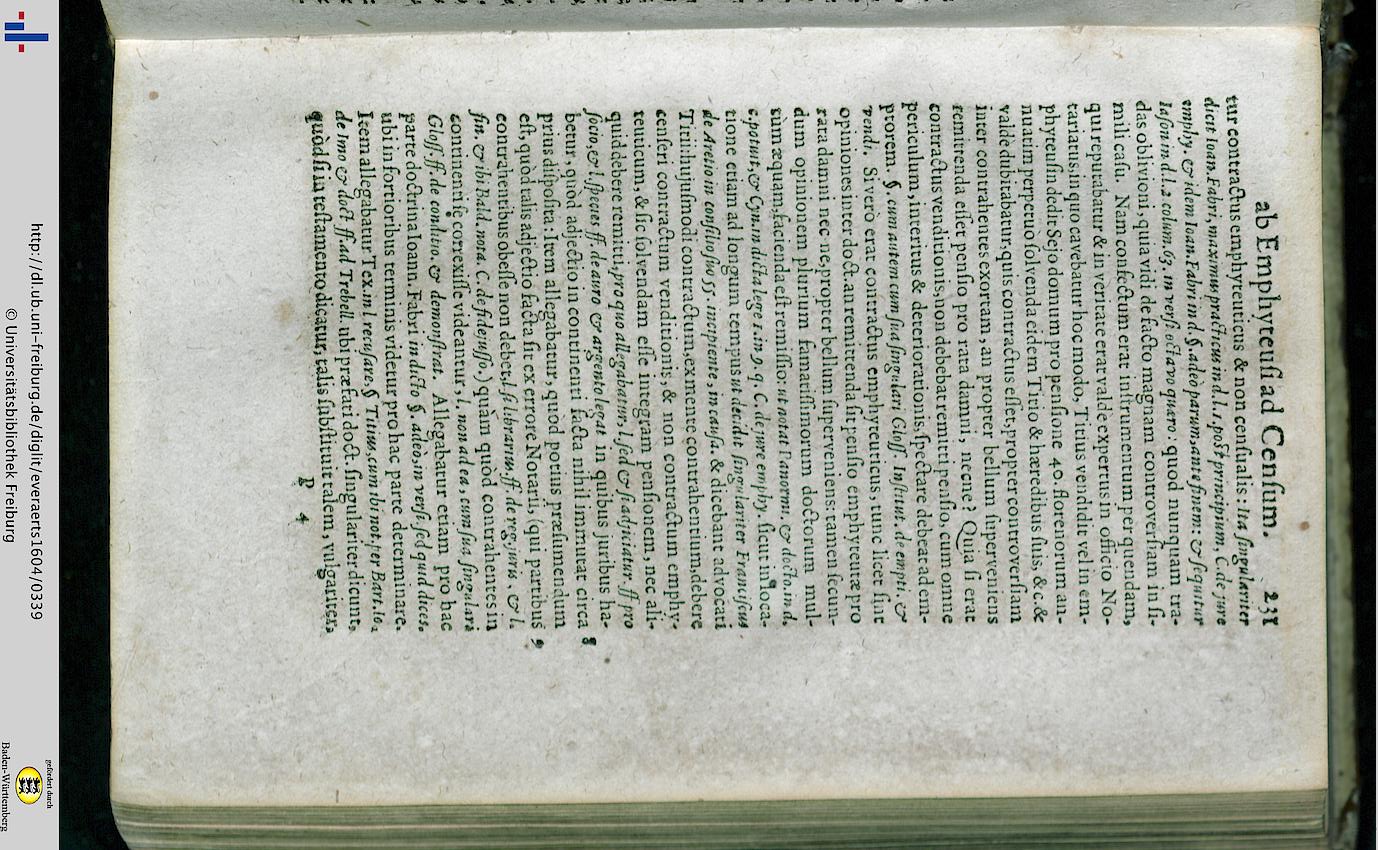 ab Emphyteusi ad Censum. 231
tur contractus emphyteuticus & non censualis: ita singulariter
dicit Ioan. Fabri, maximus practicus in d. l. 1. post principium, C. de jure
emphy. & idem Ioan. Fabri in d. §. adeò parum ante finem: & sequitur
Iason in d. l. 2. colum. 63. in vers. octavo quæro: quod nunquam tra-
das oblivioni, quia vidi de facto magnam controversiam in si-
mili casu. Nam confectum erat instrumentum per quendam,
qui reputabatur & in veritate erat valdè expertus in officio No-
tariatus, in quo cavebatur hoc modo, Titius vendidit vel in em-
phyteusin dedit Sejo domum pro pensione 40. florenorum an-
nuatim perpetuo solvenda eidem Titio & hæredibus suis, & c. &
valdè dubitabatur, quis contractus esset, propter controversiam
inter contrahentes exortam, an propter bellum superveniens
remittenda esset pensio pro rata damni, necne? Quia si erat
contractus venditionis, non debebat remitti pensio, cum omne
periculum, interitus & deteriorationis, spectare debeat ad em-
ptorem. §. cum autem cum sua singulari Gloss. Instit. de empti. &
vendi. Si verò erat contractus emphyteuticus, tunc licet sint
opiniones inter doct. an remittenda sit pensio emphyteutæ pro
rata damni nec ne, propter bellum superveniens: tamen secun-
dum opinionem plurium famatissimorum doctorum mul-
tùm æquam, facienda est remissio: ut notat Panorm. & docto. in d.
c. potuit, & Cyn. in dicta lege 1. in 9. q. C. de jure emphy. sicut in loca-
tione etiam ad longum tempus ut decidit singulariter Franciscus
de Aretio in consilio suo 55. incipiente, in causa. & dicebant advocati
Titii hujusmodi contractum, ex mente contrahentium, debere
censeri contractum venditionis, & non contractum emphy-
teuticum, & sic solvendam esse integram pensionem, nec ali-
quid debere remitti, pro quo allegabatur, l. sed & si adjiciatur. ff. pro
socio, & l. species ff. de auro & argento legat. in quibus juribus ha-
betur, quod adjectio in continenti facta nihil immutat circa 8
prius disposita: Item allegabatur, quod potius præsumendum
est, quòd talis adjectio facta sit ex errore Notarii, (qui partibus 9
contrahentibus obesse non debet, l. si librarius. ff. de reg. juris. & l.
fin. & ibi Bald. nota. C. de fidejusso.) quàm quòd contrahentes in
continenti se correxisse videantur, l. non ad ea, cum sua singulari
Gloss. ff. de conditio. & demonstrat. Allegabatur etiam pro hac
parte doctrina Ioann. Fabri in dicto §. adeò, in vers. sed quid dices.
ubi in fortioribus terminis videtur pro hac parte determinare.
Item allegabatur Tex. in l. recusare, § Titius, cum ibi not. per Bart. Io.
de Imo & doct. ff. ad Trebell. ubi præfati doct. singulariter dicunt,
quòd si in testamento dicatur, talis substituit talem, vulgariter,
P 4
http://dl.ub.uni-freiburg.de/diglit/everaerts1604/0339
© Universitätsbibliothek Freiburg
gefördert durch
Baden-Württemberg